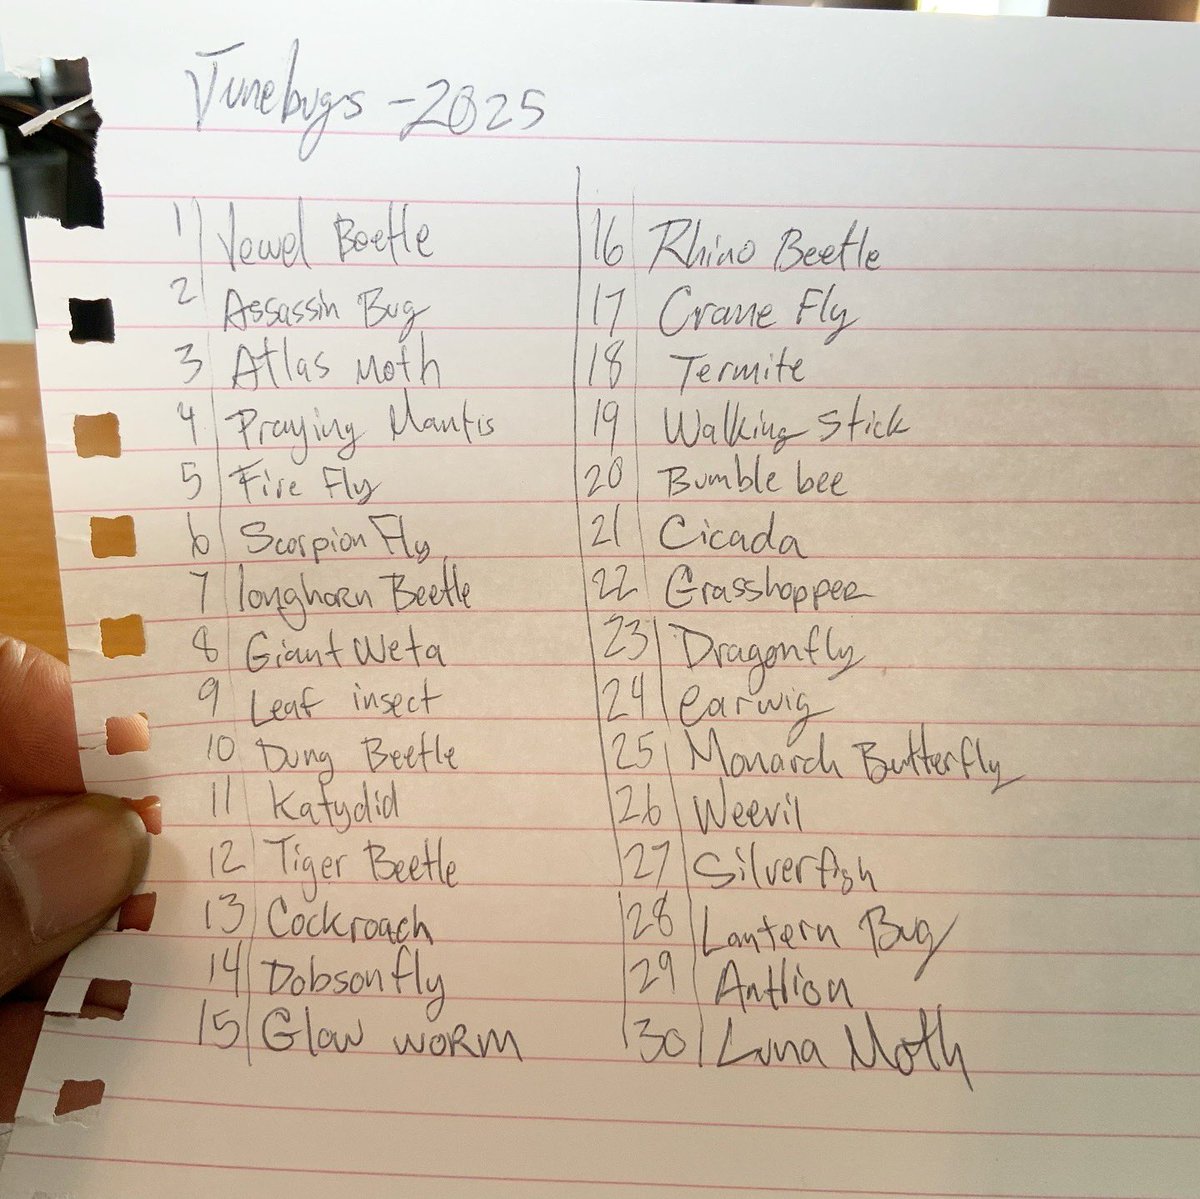 Junebugs - 2025
1 Jewel Beetle
2 Assassin Bug
3 Atlas Moth
4 Praying Mantis
5 Fire Fly
6 Scorpion Fly
7 longhorn Beetle
8 Giant Weta
9 Leaf insect
10 Dung Beetle
11 Katydid
12 Tiger Beetle
13 Cockroach
14 Dobsonfly
15 Glow worm
16 Rhino Beetle
17 Crane Fly
18 Termite
19 Walking Stick
20 Bumble bee
21 Cicada
22 Grasshopper
23 Dragonfly
24 earwig
25 Monarch Butterfly
26 Weevil
27 Silverfish
28 Lantern Bug
29 Antlion
30 Luna Moth